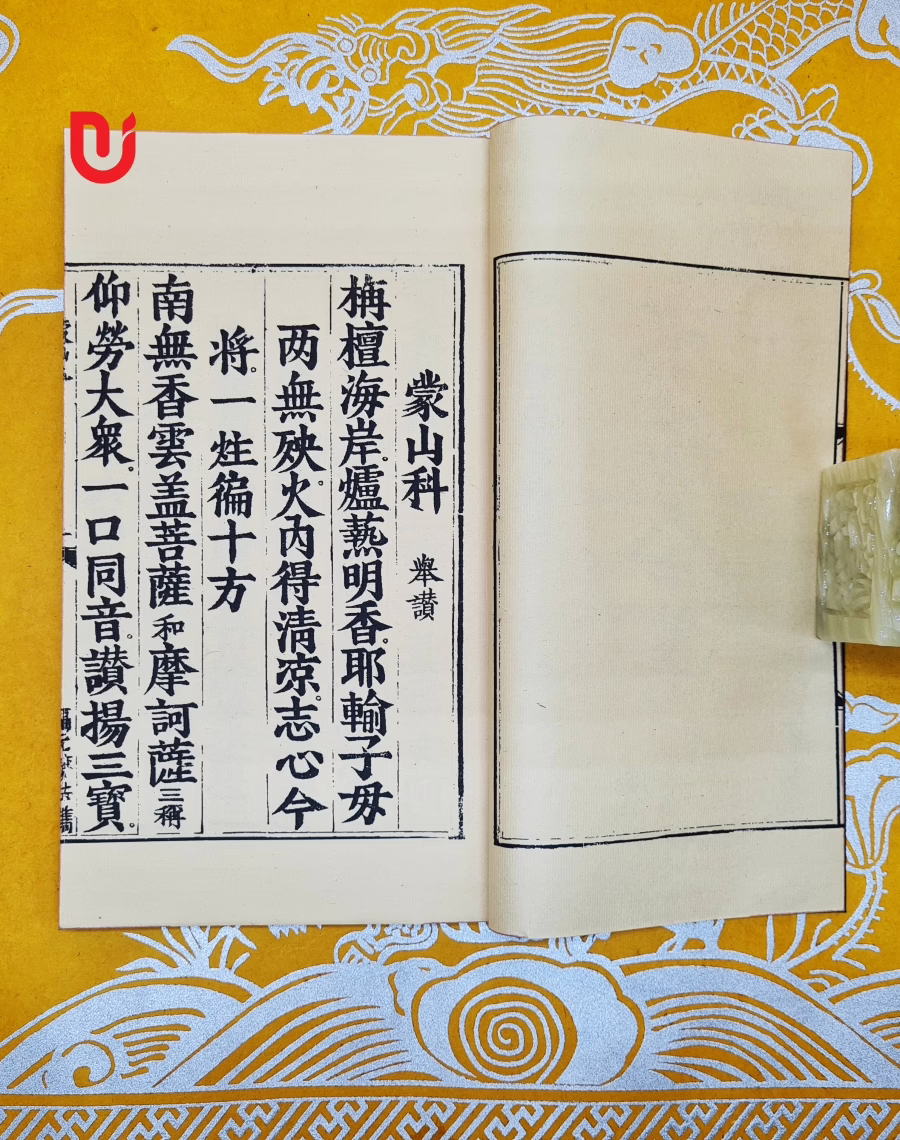 蒙山科 舉讃
栴檀海岸。爐爇明香。耶輸子毋
两無殃火。內得清凉。志心今
将。一炷徧十方
南無香雲盖菩薩和摩訶薩三稱
仰勞大衆。一口同音。讃揚三寶。